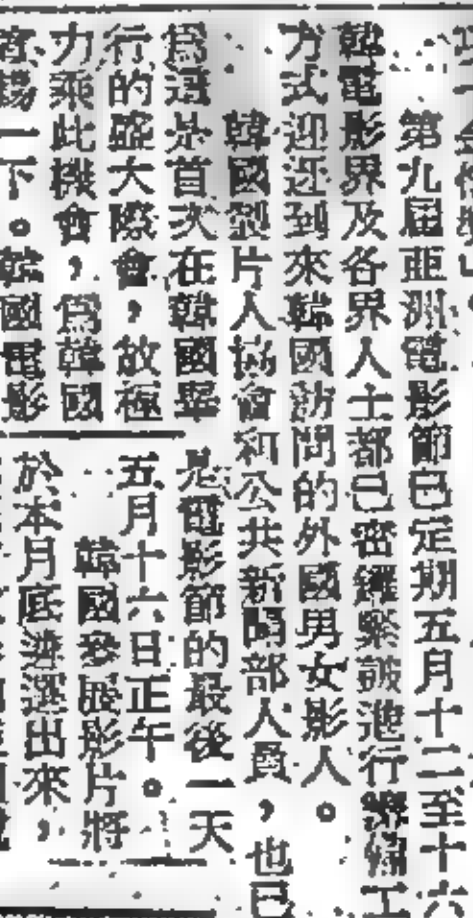 第九屆亞洲電影節已定期五月十二至十六
韓電影界及各界人士都已密鑼緊鼓進行工
方式迎迓到來韓國訪問的外國男女影人。
韓國製片人協會和公共新聞部人員，也已
爲這是首次在韓國舉
行的盛大際會，放極
力乘此機會，爲韓國
一下。韓國電影
是電影節的最後一天
五月十六日正午。
韓國參展影片將
於本月底遴選出來，